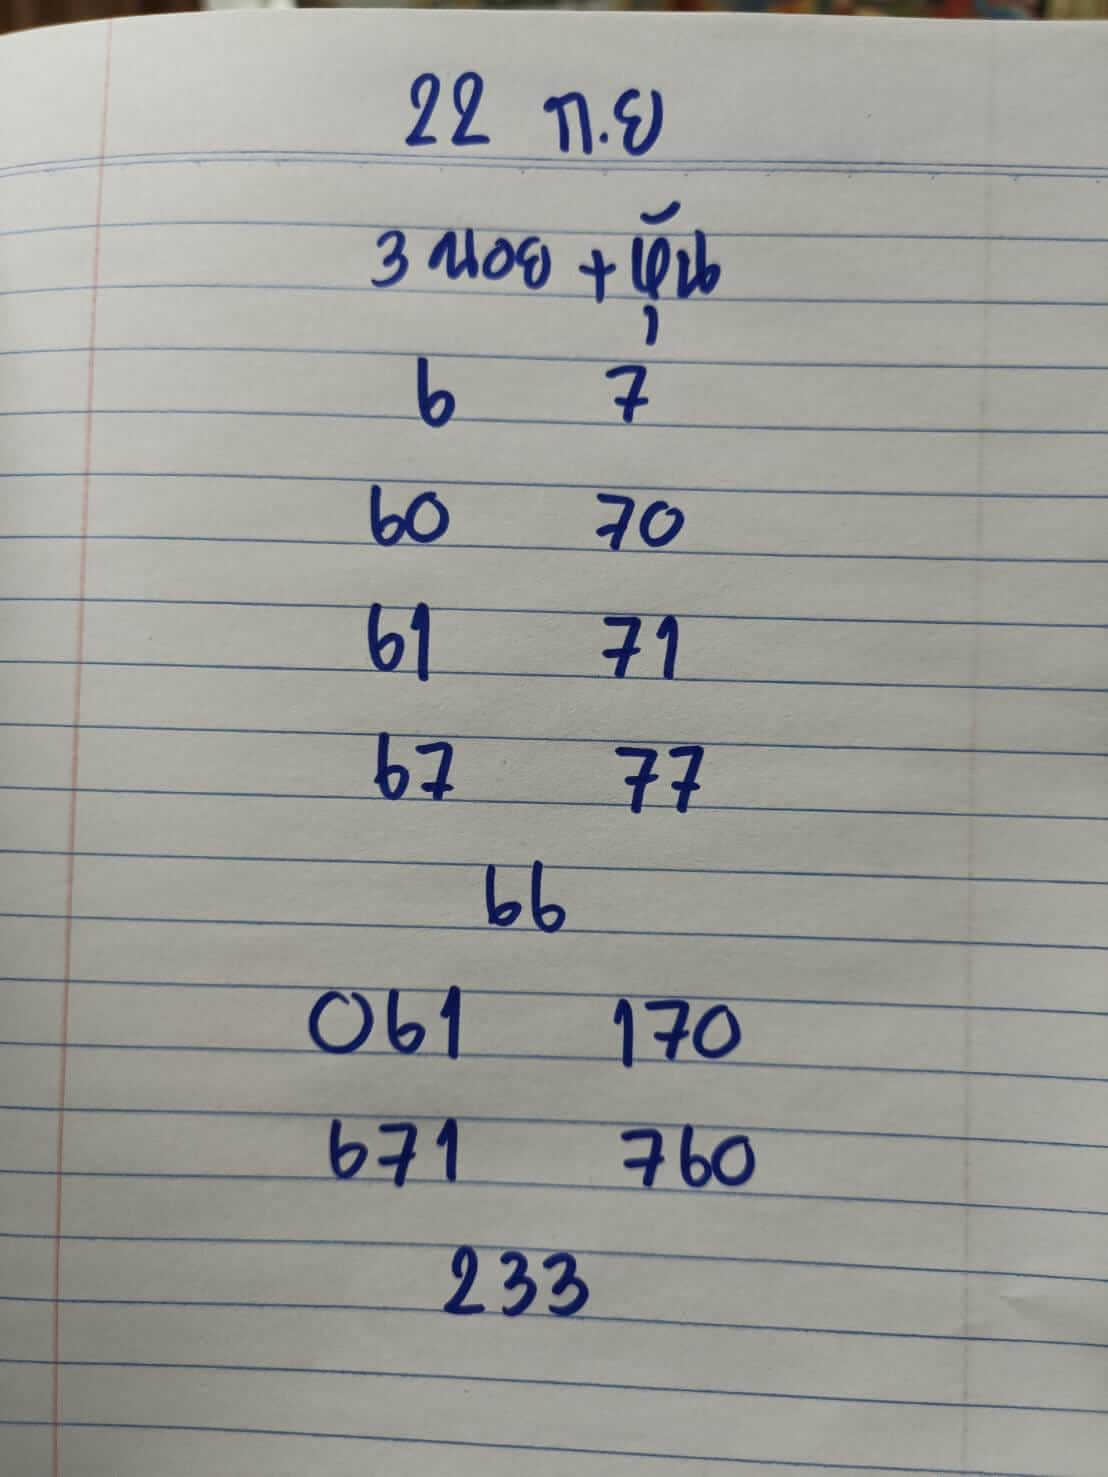 22 ก.ย
3 นอย + หุ้น
6 7
60 70
61 71
67 77
66
061 170
671 760
233